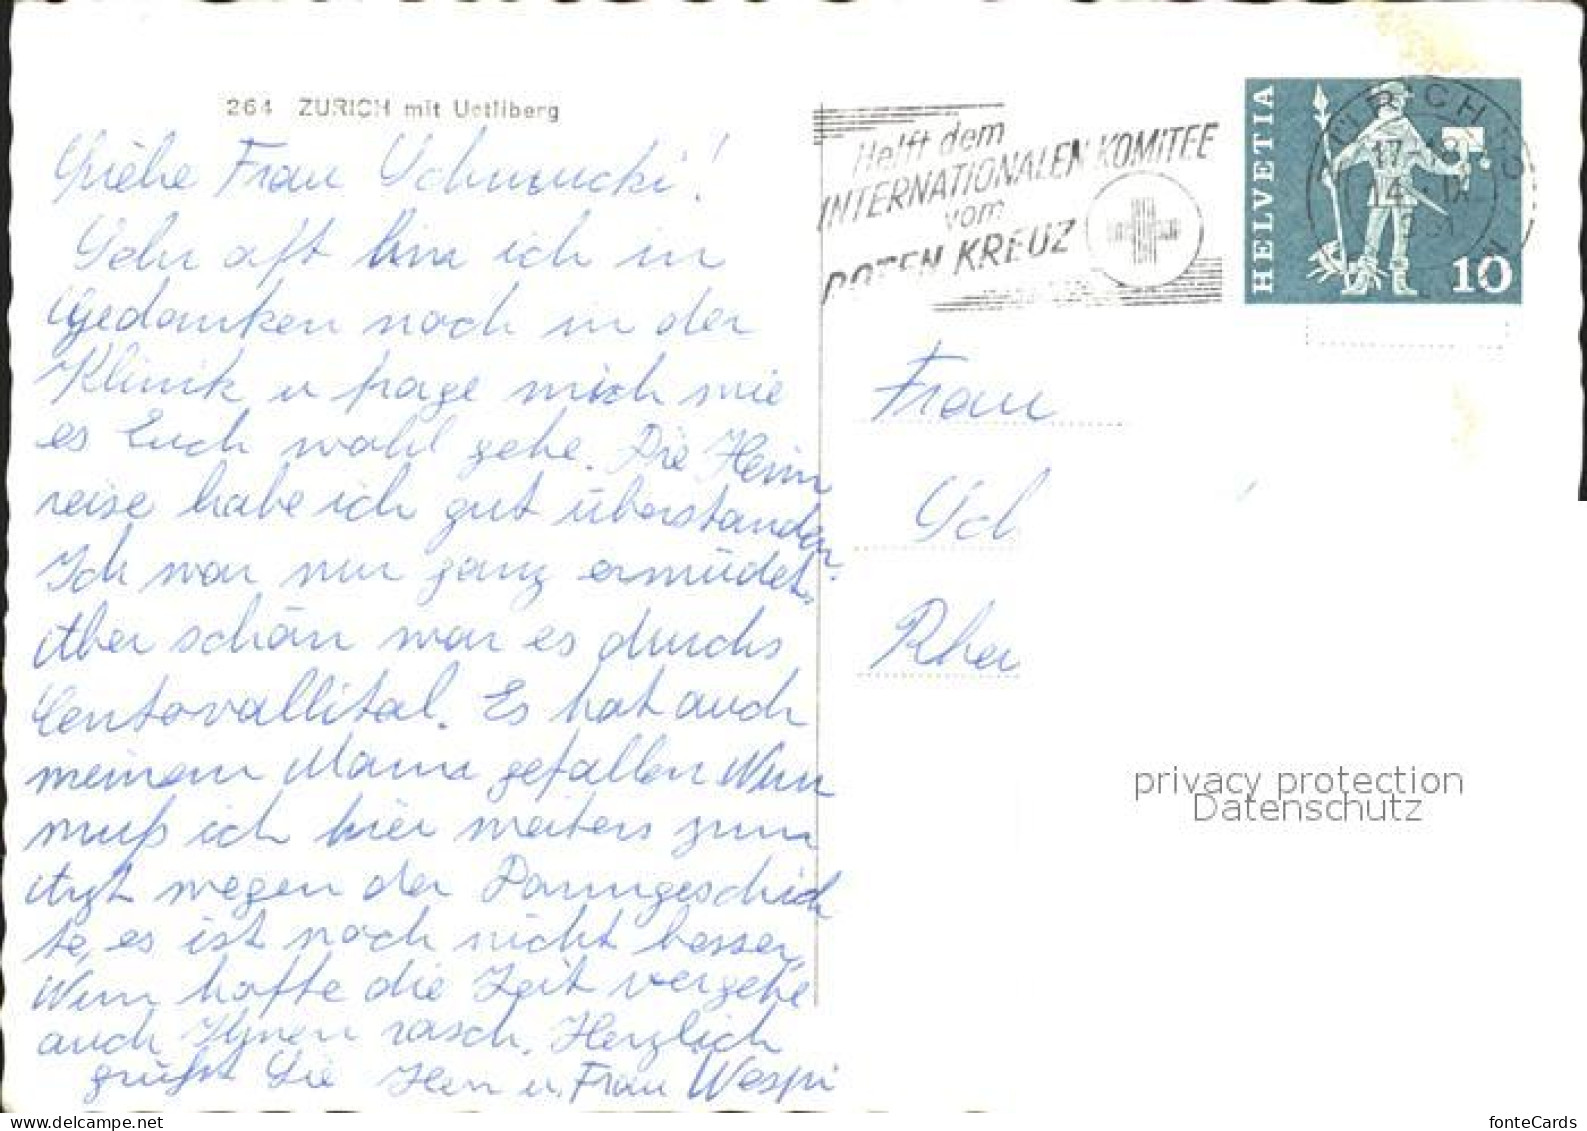 264 ZÜRICH mit Uetliberg
Liebe Frau Schmucki!
Sehr oft bin ich in
Gedanken noch in der
Klinik u frage mich wie
es Euch wohl gehe. Die Heim
reise habe ich gut überstanden.
Ich war nur ganz ermüdet.
Aber schön war es durchs
Centovallital. Es hat auch
meinem Mann gefallen Nun
muß ich hier weiters zum
Arzt wegen der Darmgeschich
te, es ist noch nicht besser,
Nun hoffe die Zeit vergehe
auch Ihnen rasch. Herzlich
grüßt Sie Herr u. Frau Wespi
Helft dem
INTERNATIONALEN KOMITEE
vom
ROTEN KREUZ
HELVETIA
10
14. IX.
Frau
Sch
Rhei
privacy protection
Datenschutz
delcampe.net
fonteCards